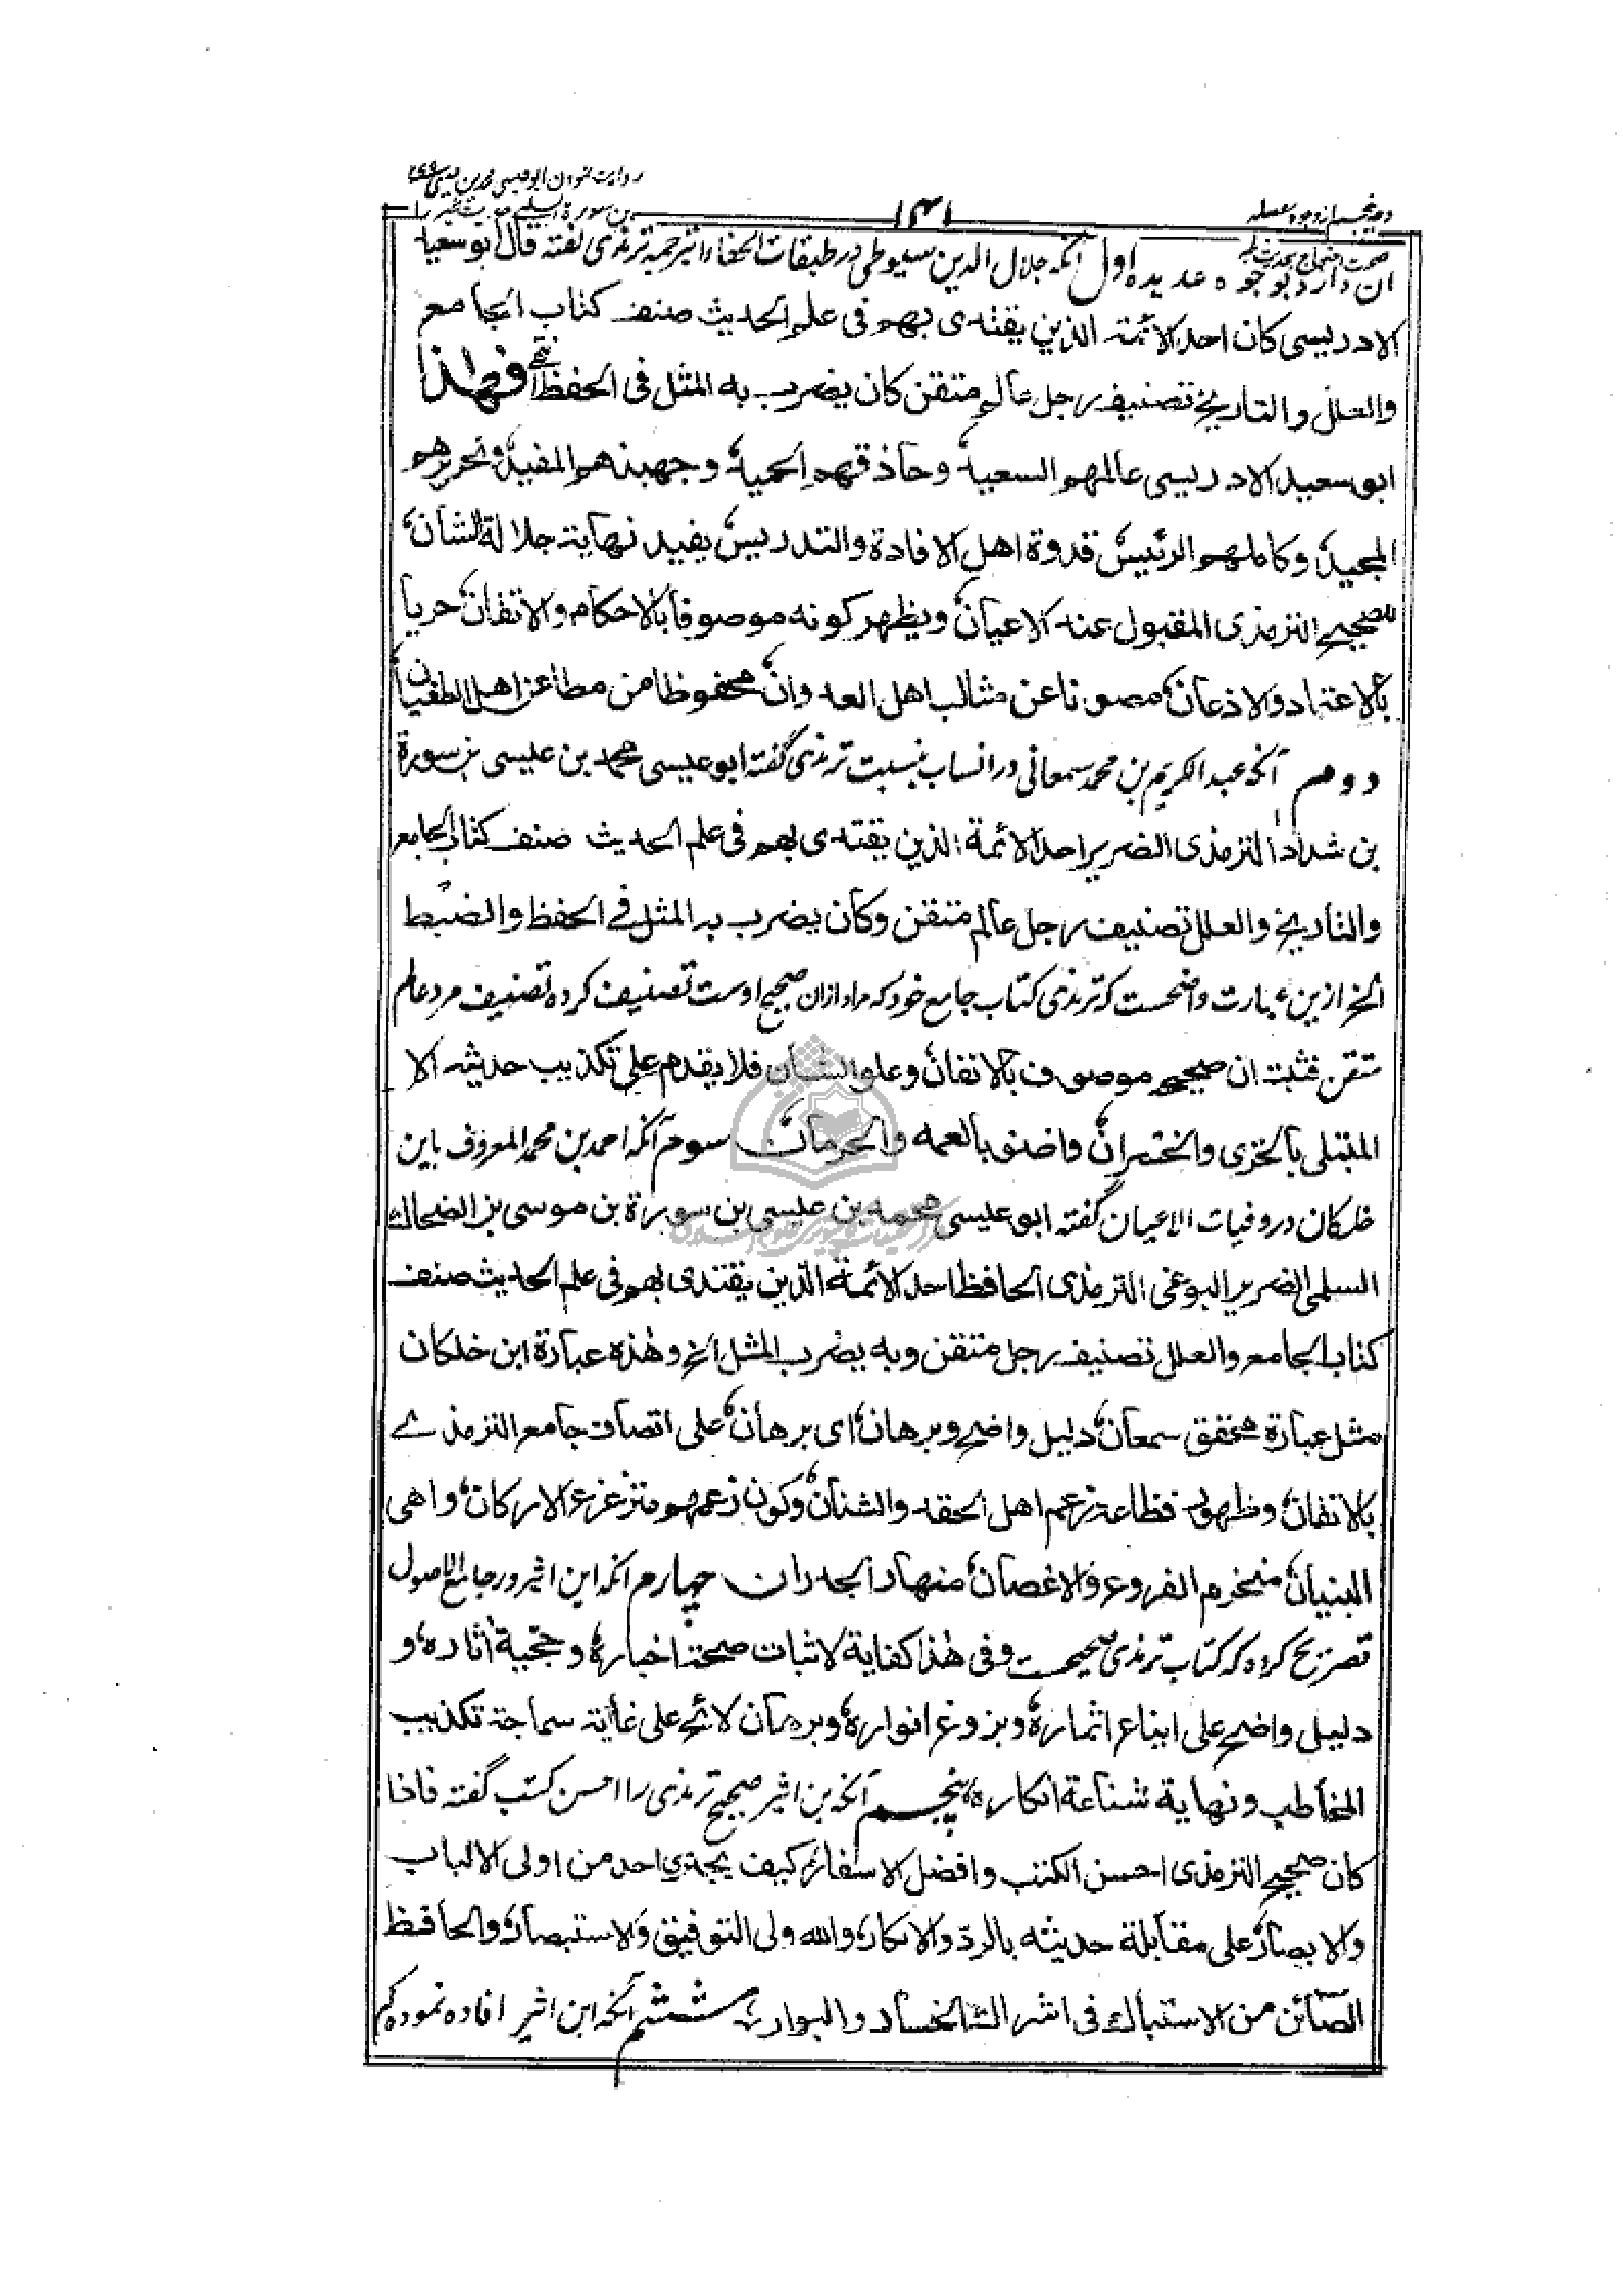 روایت نمودن ابو عیسی محمد بن عیسی
وجه پنجم از وجوه
بن سورة السلمی حدیث طیر را
۱۴۱
صحت و احتجاج بحدیث طیر
ان دارد بوجوه عدیده اول آنکه جلال الدین سیوطی در طبقات الحفاظ بترجمه ترمذی گفته قال ابو سعید
الادریسی کان احد الائمة الذین یقتدی بهم فی علم الحدیث صنف کتاب الجامع
والعلل والتاریخ تصنیف رجل عالم متقن کان یضرب به المثل فی الحفظ انتهی فهذا
ابو سعید الادریسی عالمهم السعید وحاذقهم الحمید وجهبذهم المفید ونحریرهم
المجید وکاملهم الرئیس قدوة اهل الافادة والتدریس یفید نهایة جلالة الشأن
لصحیح الترمذی المقبول عند الاعیان ویظهر کونه موصوفا بالاحکام والاتقان حریا
بالاعتماد والاذعان مصونا عن مثالب اهل العدوان محفوظا من مطاعن اهل الطغیان
دوم آنکه عبد الکریم بن محمد سمعانی در انساب بنسبت ترمذی گفته ابو عیسی محمد بن عیسی بن سورة
بن شداد الترمذی الضریر احد الائمة الذین یقتدی بهم فی علم الحدیث صنف کتاب الجامع
والتأریخ والعلل تصنیف رجل عالم متقن وکان یضرب به المثل فی الحفظ والضبط
الخ ازین عبارت واضحست که ترمذی کتاب جامع خود که مراد ازان صحیح اوست تصنیف کرده تصنیف مرد عالم
متقن فثبت ان صحیحه موصوف بالاتقان وعلو الشأن فلا یقدم علی تکذیب حدیثه الا
المبتلی بالخزی والخسران واضنو بالعمه والحرمان سوم آنکه احمد بن محمد المعروف بابن
خلکان در وفیات الاعیان گفته ابو عیسی محمد بن عیسی بن سورة بن موسی بن الضحاك
السلمی الضریر البوغی الترمذی الحافظ احد الائمة الذین یقتدی بهم فی علم الحدیث صنف
کتاب الجامع والعلل تصنیف رجل متقن وبه یضرب المثل الخ وهذه عبارة ابن خلکان
مثل عبارة محقق سمعان دلیل واضح وبرهان ای برهان علی اتصاف جامع الترمذی
بالاتقان وظهور فظاعة زعم اهل الحقد والشنأن وکون زعمهم متزعزع الارکان واهی
البنیان منخرم الفروع والاغصان منهار الجدران چهارم آنکه ابن اثیر در جامع الاصول
تصریح کرده که کتاب ترمذی صحیحست وفی هذا کفایة لاثبات صحة اخباره وحجیة اثاره و
دلیل واضح علی ایناع اثماره وبزوغ انواره وبرهان لائح علی غایة سماجة تکذیب
المخاطب ونهایة شناعة انکاره پنجم آنکه بن اثیر صحیح ترمذی را احسن کتب گفته فاذا
کان صحیح الترمذی احسن الکتب وافضل الاسفار کیف یجتری احد من اولی الالباب
والابصار علی مقابلة حدیثه بالردّ والانکار والله ولی التوفیق والاستبصار والحافظ
الصائن من الاستباك فی اشراك الخسار والبوار ششم آنکه ابن اثیر افاده نموده که